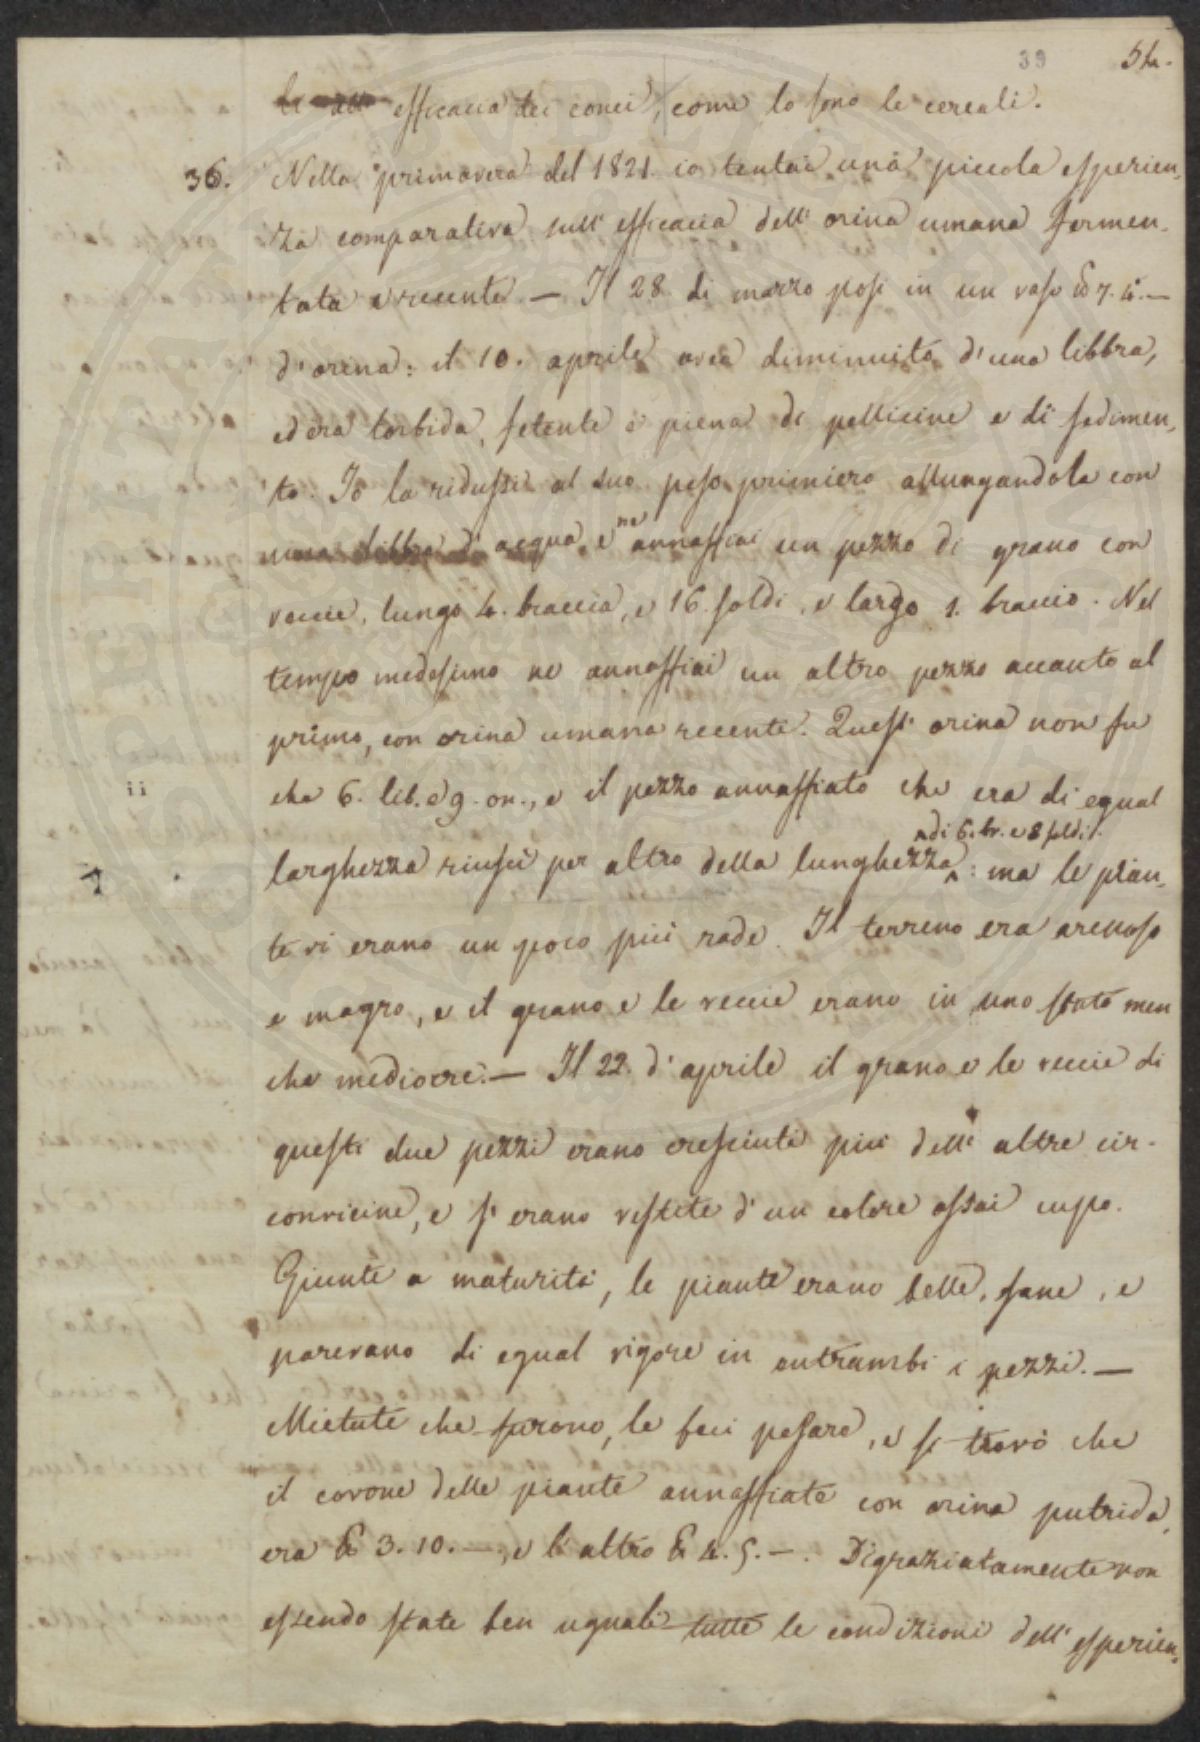 39 52.
efficacia dei conci, come lo sono le cereali.
36. Nella primavera del 1821. io tentai una piccola esperien-
za comparativa sull' efficacia dell' orina umana fermen-
tata e recente. — Il 28 di marzo posi in un vaso ℔ 7. 4. —
d'orina: il 10. aprile avea diminuito d'una libbra,
ed era torbida, fetente e piena di pellicine e di sedimen-
to. Io la ridussi al suo peso primiero allungandola con
una libbra d' acqua, e ne annaffiai un pezzo di grano con
veccie, lungo 4. braccia, e 16. soldi, e largo 1. braccio. Nel
tempo medesimo ne annaffiai un altro pezzo accanto al
primo, con orina umana recente. Quest' orina non fu
che 6. lib. e 9. on., e il pezzo annaffiato che era di egual
di 6. br. e 8 soldi
larghezza riuscì per altro della lunghezza : ma le pian-
te vi erano un poco più rade. Il terreno era arenoso
e magro, e il grano e le veccie erano in uno stato men
che mediocre. — Il 22. d' aprile il grano e le veccie di
questi due pezzi erano cresciute più dell' altre cir-
convicine, e s' erano vestite d' un colore assai cupo.
Giunte a maturità, le piante erano belle, sane, e
parevano di egual vigore in entrambi i pezzi. —
Mietute che furono, le feci pesare, e si trovò che
il covone delle piante annaffiate con orina putrida,
era ℔ 3. 10. —, e l' altro ℔ 4. 5. —. Disgraziatamente non
essendo state ben uguali tutte le condizioni dell' esperien-